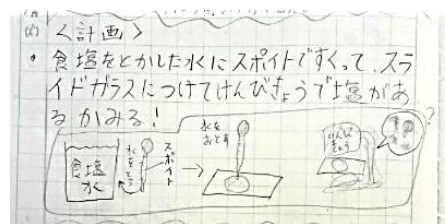 <計画>
• 食塩をとかした水にスポイトですくって、スラ
イドガラスにつけてけんびきょうで塩があ
るかみる!
食塩
水
水をとる
スポイト
水を
おとす
けんび
きょう
?